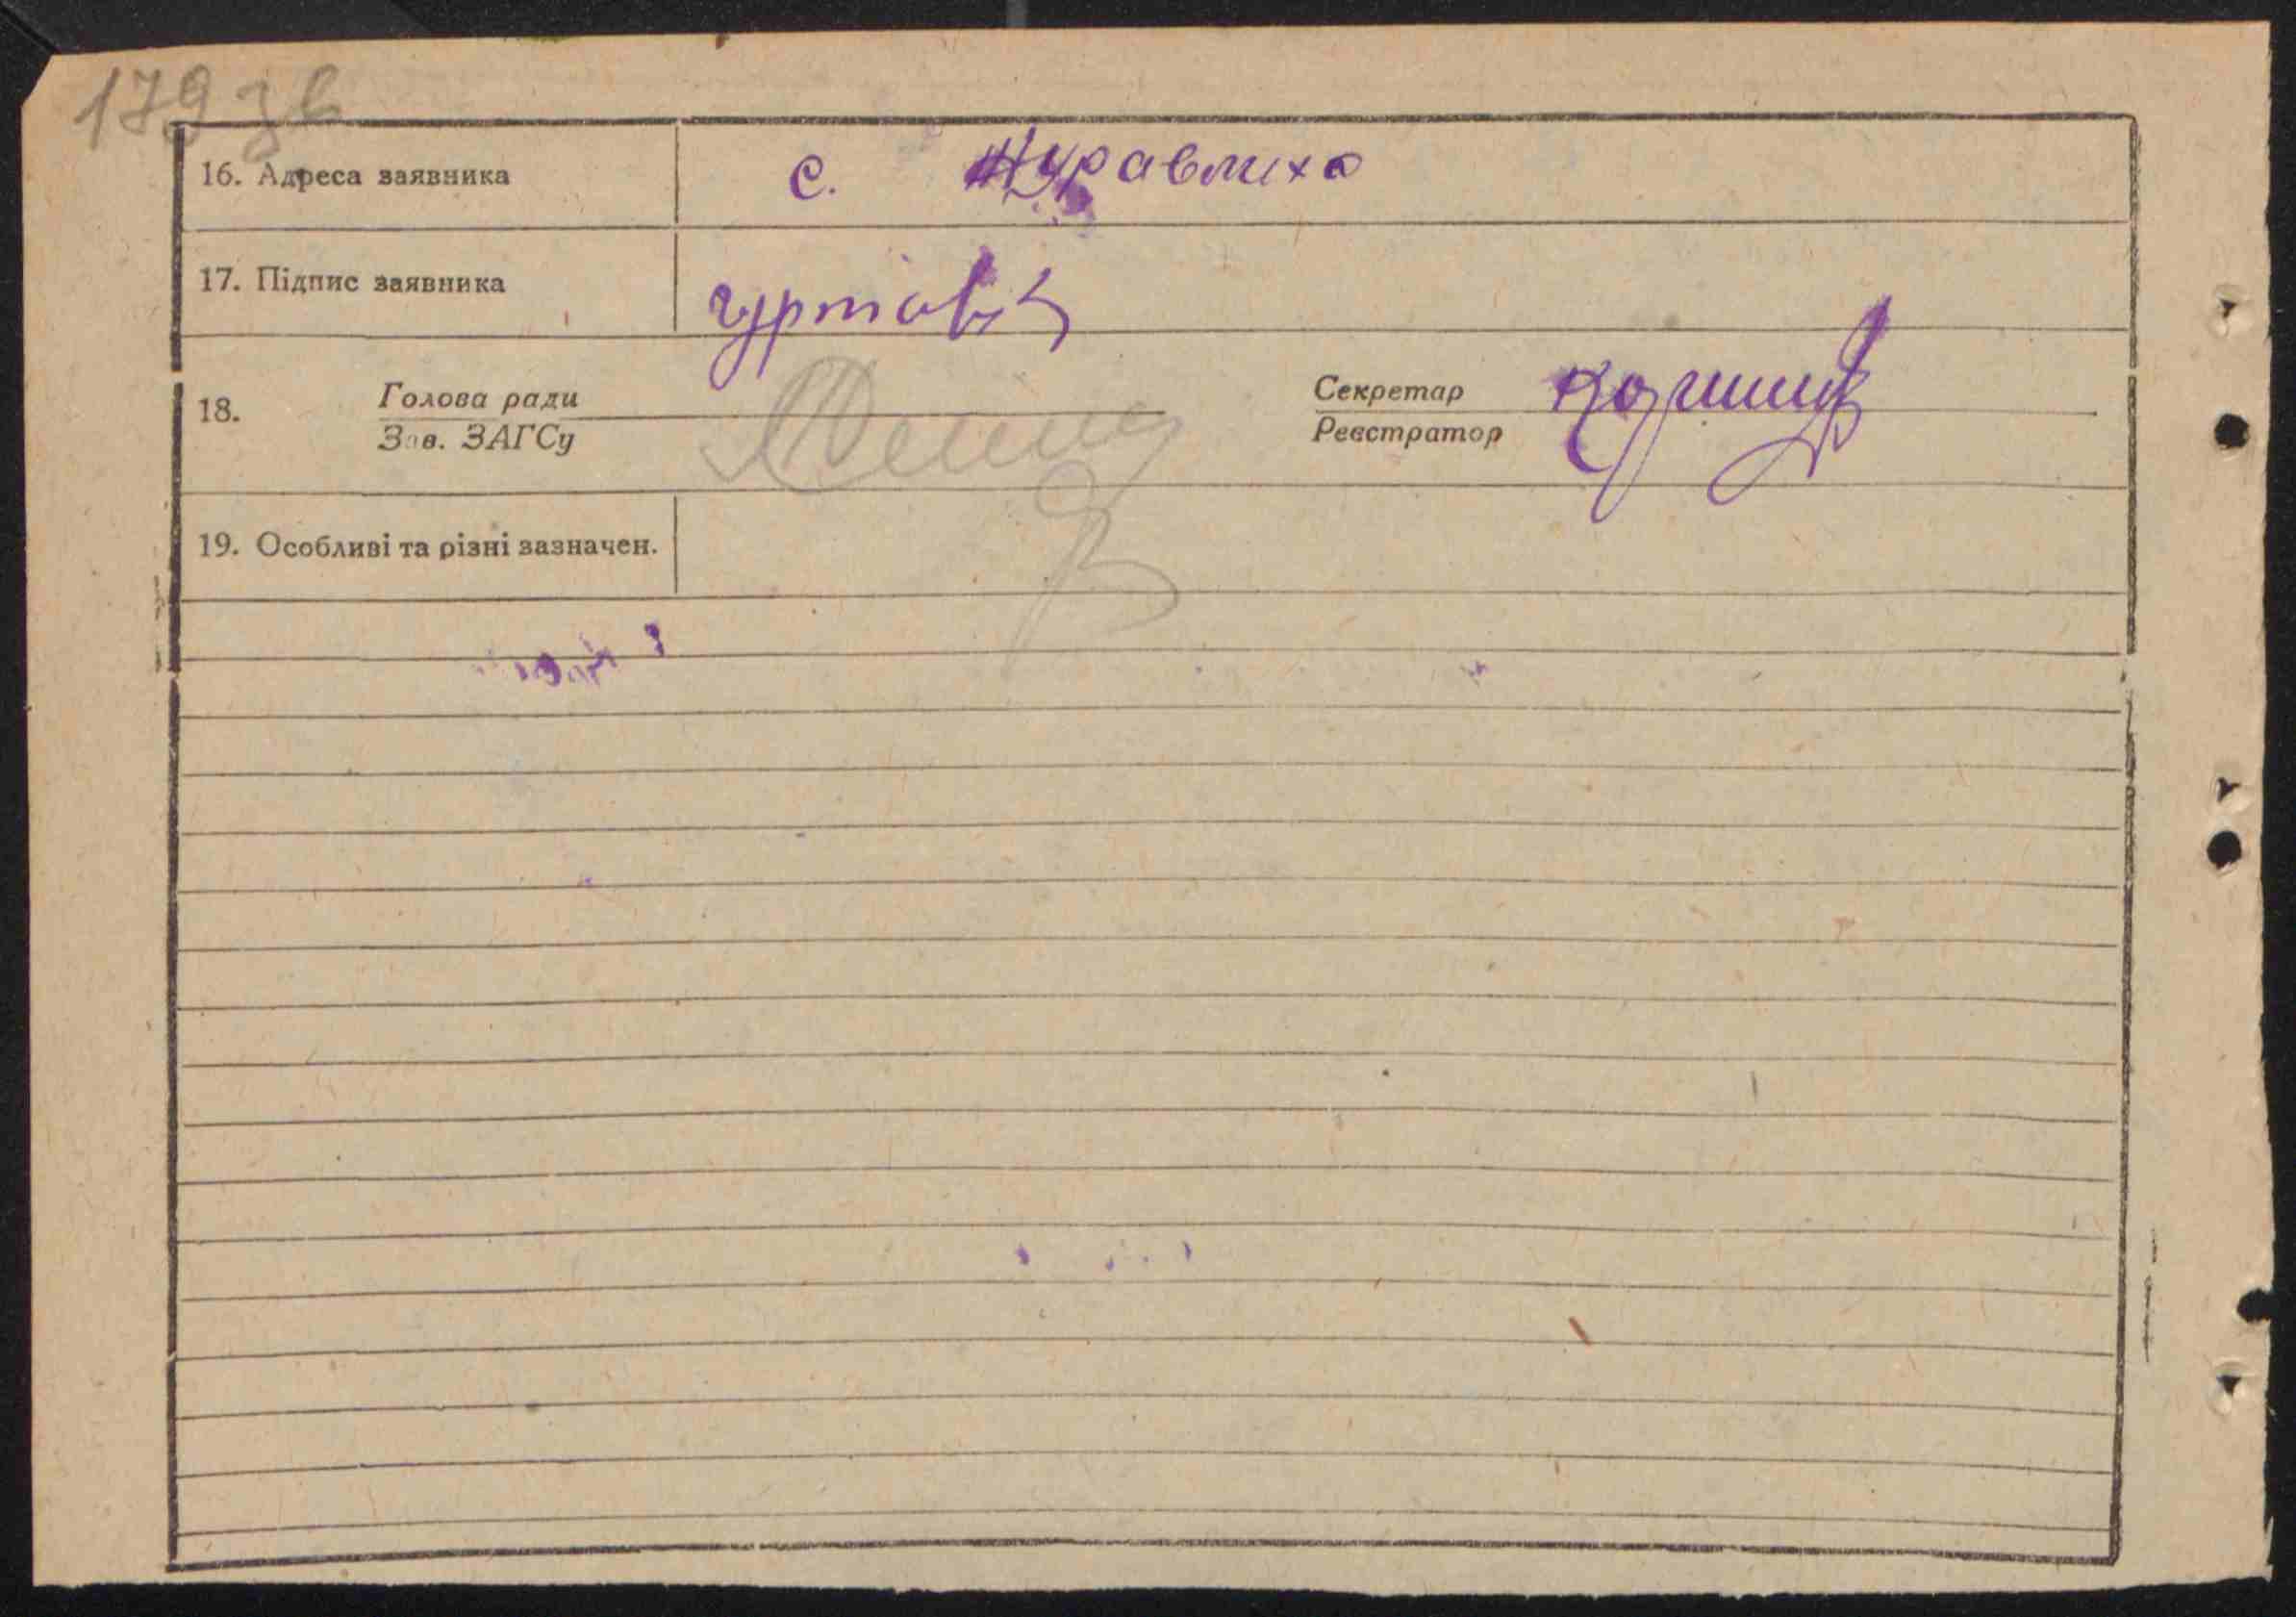 179 зв
16. Адреса заявника с. Журавлиха
17. Підпис заявника
18. Голова ради Секретар
Зав. ЗАГСу Реєстратор
19. Особливі та різні зазначен.